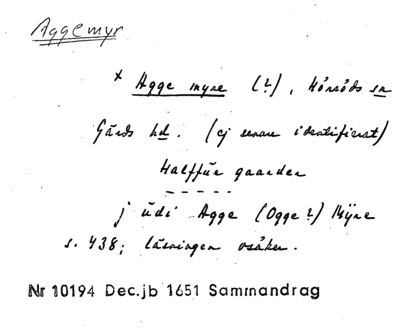 Aggemyr
x Agge myre (?), Hörröds sn
Gärds hd. (ej senare identifierat)
Halffür gaarden
j üdi Agge (Ogge?) Mÿre
s. 438; läsningen osäker.
Nr 10194 Dec.jb 1651 Sammandrag